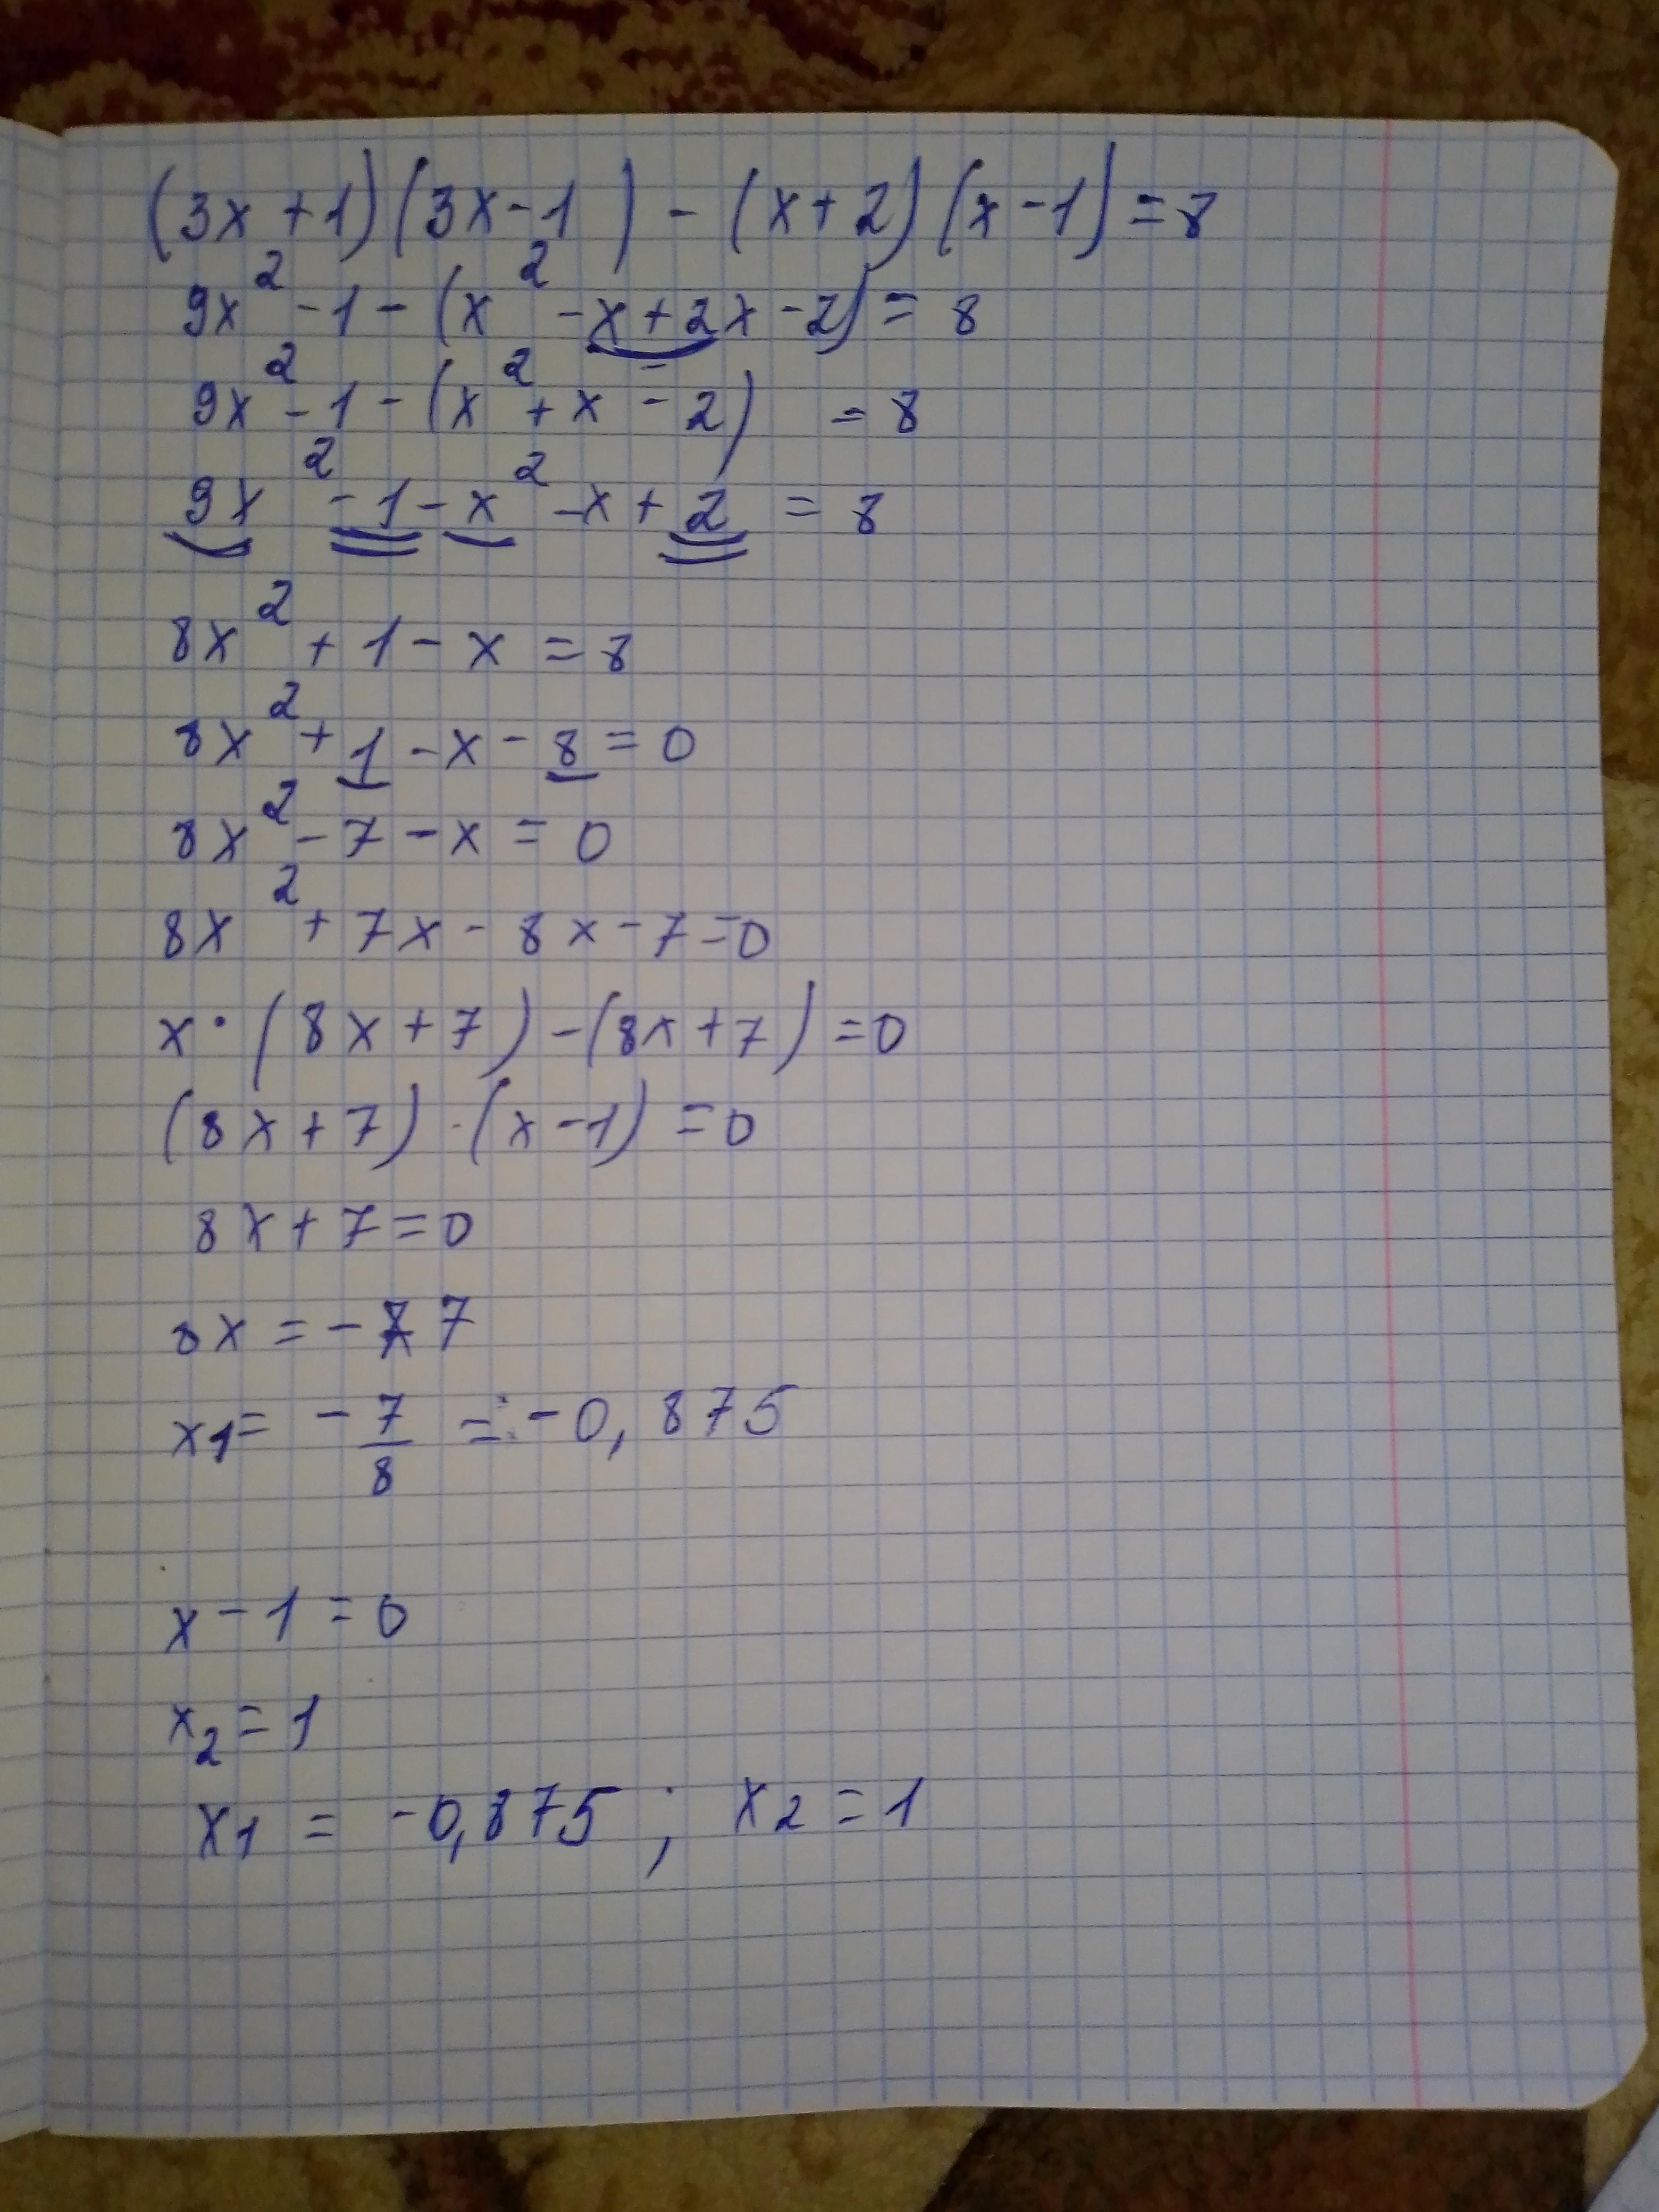 (3x+1)(3x-1)-(x+2)(x-1)=8
9x²-1-(x²-x+2x-2)=8
9x²-1-(x²+x-2)=8
9x²-1-x²-x+2=8
8x²+1-x=8
8x²+1-x-8=0
8x²-7-x=0
8x²+7x-8x-7=0
x·(8x+7)-(8x+7)=0
(8x+7)·(x-1)=0
8x+7=0
8x=-7
x1=-7/8=-0,875
x-1=0
x₂=1
x₁=-0,875; x₂=1